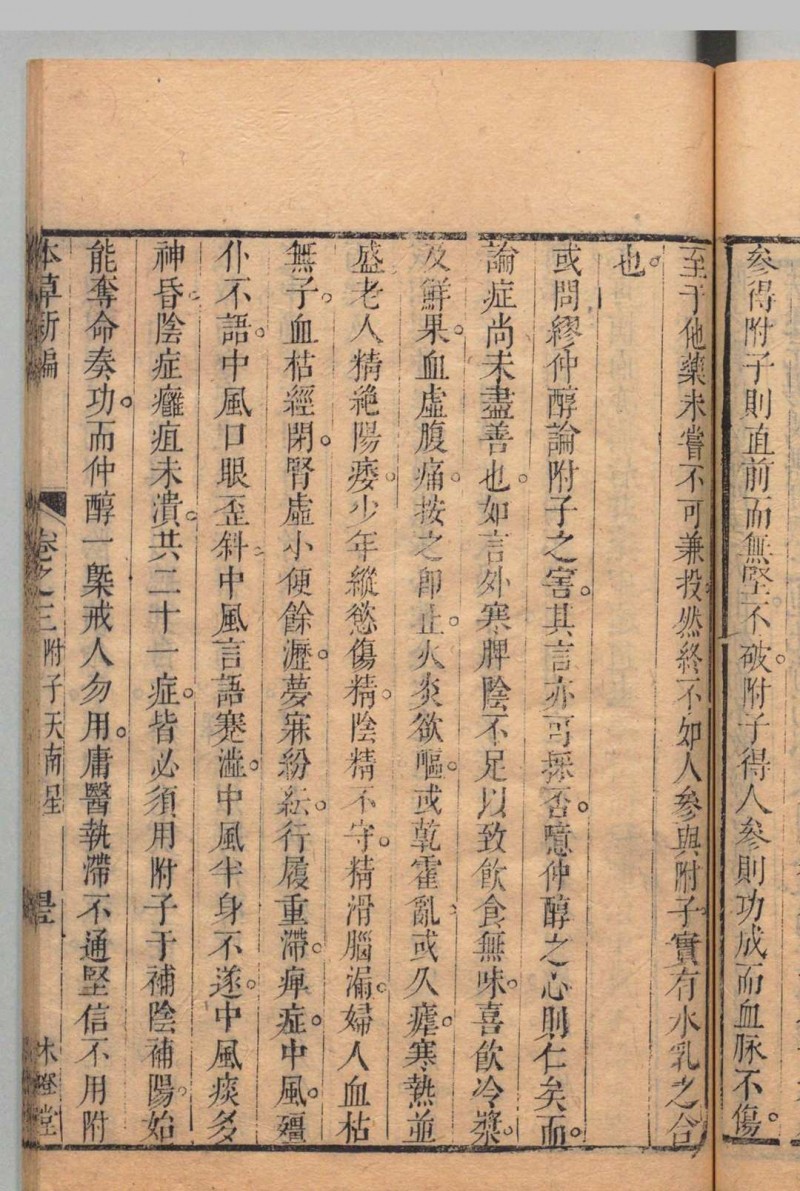 參得附子則直前而無堅不破。附子得人參則功成而血脉不傷。
至于他藥未嘗不可兼投然終不如人參與附子實有水乳之合
也。
或問繆仲醇論附子之害。其言亦可採否。噫仲醇之心則仁矣而。
論症尚未盡善也。如言外寒脾陰不足以致飲食無味。喜飲冷漿。
及鮮果。血虛腹痛。按之即止。火炎欲嘔。或乾霍亂或久瘧。寒熱並
盛老人精絶陽痿。少年縱慾傷精。陰精不守。精滑腦漏。婦人血枯
無子。血枯經閉。腎虛小便餘瀝。夢寐紛紜。行履重滯。痺症。中風。殭
仆不語。中風口眼歪斜。中風言語蹇澁。中風半身不遂。中風痰多
神昏。陰症癰疽未潰。共二十一症。皆必須用附子于補陰補陽。始
能奪命奏功。而仲醇一槩戒人勿用。庸醫執滯不通堅信不用附
本草新編 卷之三 附子 天南星